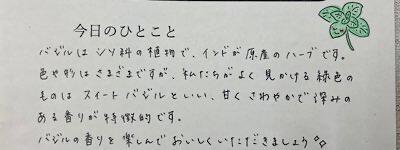 今日のひとこと
バジルはシソ科の植物で、インドが原産のハーブです。
色や形はさまざまですが、私たちがよく見かける緑色の
ものはスイートバジルといい、甘くさわやかで深みの
ある香りが特徴的です。
バジルの香りを楽しんでおいしくいただきましょう